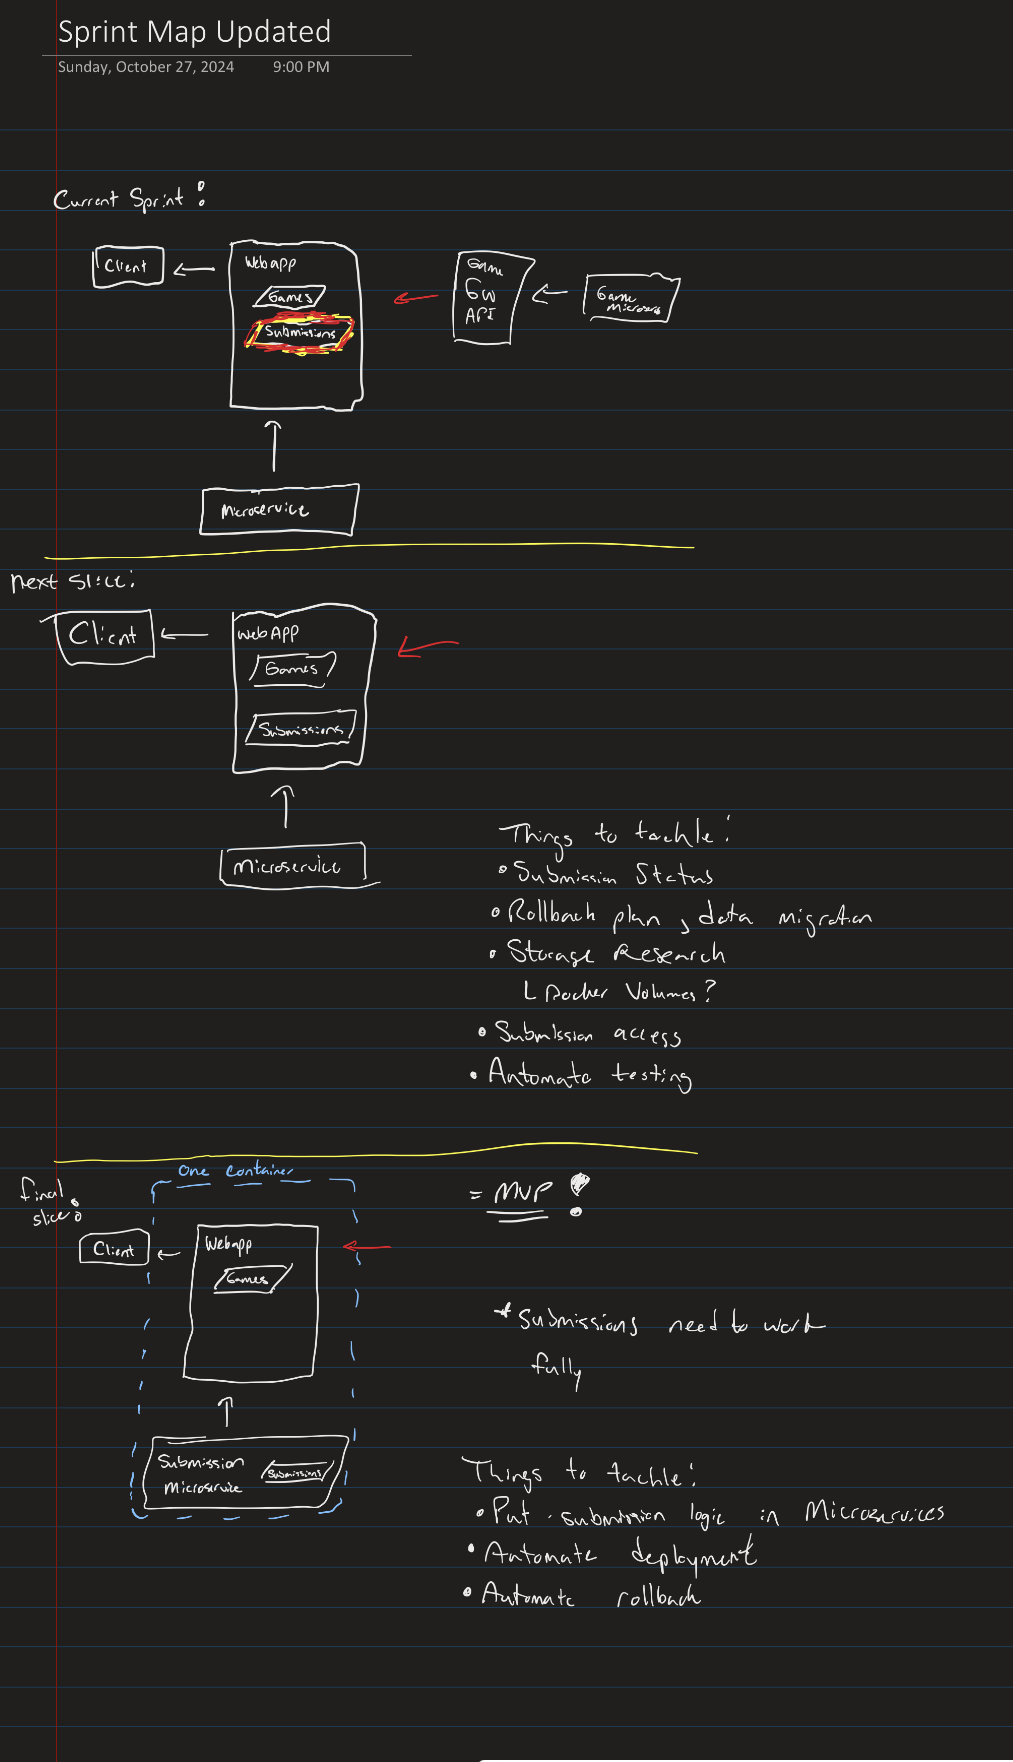 Sprint Map Updated
Sunday, October 27, 2024 9:00 PM
Current Sprint:
Client
Webapp
Games
Submissions
Game
GW
API
Game
Microserv
Microservice
Next Slice:
Client
WebAPP
Games
Submissions
Microservice
Things to tackle:
• Submission Status
• Rollback plan, data migration
• Storage Research
L Docker Volumes?
• Submission access
• Automate testing
One container
final
slice:
= MVP!
Client
Webapp
Games
* Submissions need to work
fully
Submission
Microservice
Submissions
Things to tackle:
• Put submission logic in Microservices
• Automate deployment
• Automate rollback